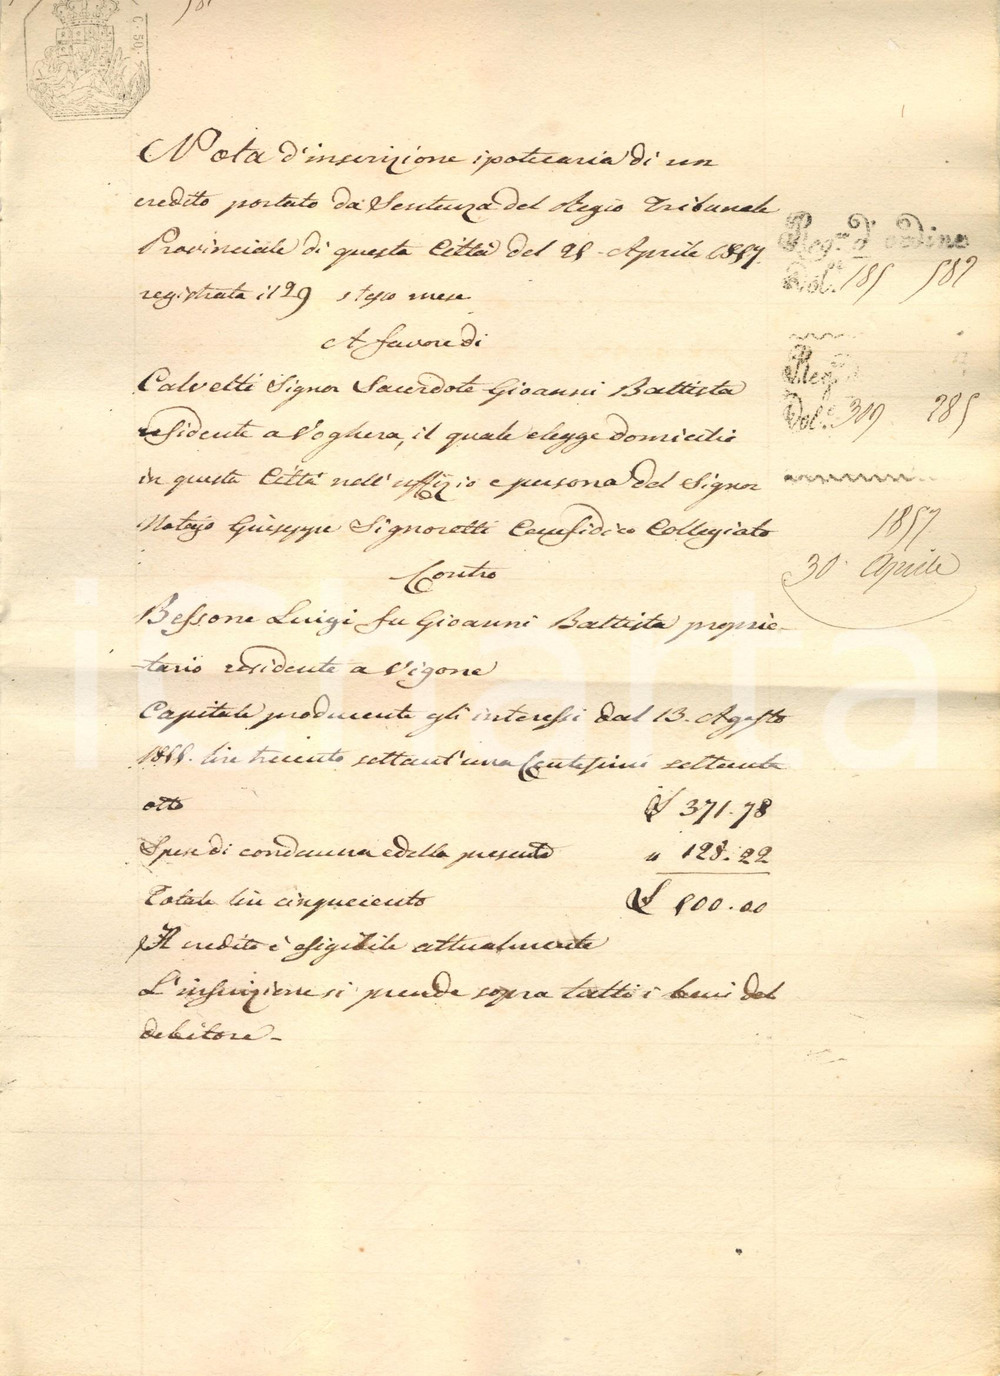 C. 50.
Nota d'inscrizione ipotecaria di un
credito portato da Sentenza del Regio Tribunale
Provinciale di questa Città del 25 Aprile 1857.
registrata il 29 stesso mese
A favore di
Calvetti Signor Sacerdote Gioanni Battista
residente a Voghera, il quale elegge domicilio
in questa Città nell'uffizio e persona del Signor
Notajo Giuseppe Signoretti Causidico Collegiato
Contro
Bessone Luigi fu Gioanni Battista proprie-
tario residente a Vigone
Capitale producente gli interessi dal 13. Agosto
1855. lire trecento settant'una Centesimi settanta
otto £ 371.78
Spese di condanna e della presente " 128.22
Totale lire cinquecento £ 500.00
Il credito è esigibile attualmente
L'inscrizione si prende sopra tutti i beni del
debitore -
Reg.° d'ordine
Vol.° 185 582
Reg.°
Vol.° 309 285
1857
30 Aprile
inCarta